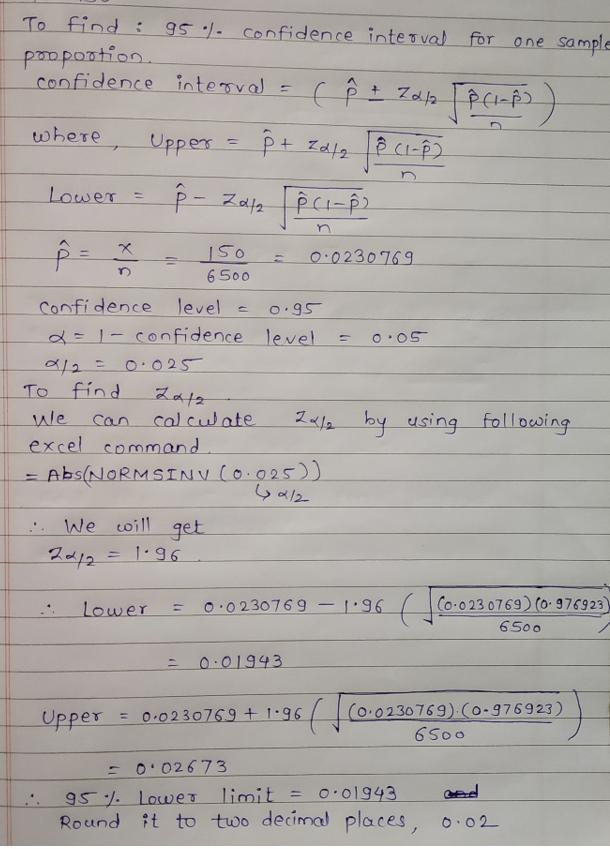 To find : 95 %. confidence interval for one sample
proportion.
confidence interval = ( p̂ ± Zα/2 √(p̂(1-p̂)/n) )
where, Upper = p̂ + Zα/2 √(p̂(1-p̂)/n)
Lower = p̂ - Zα/2 √(p̂(1-p̂)/n)
p̂ = x/n = 150/6500 = 0.0230769
confidence level = 0.95
α = 1 - confidence level = 0.05
α/2 = 0.025
To find Zα/2.
We can calculate Zα/2 by using following
excel command.
= Abs(NORMSINV (0.025))
↳ α/2
∴ We will get
Zα/2 = 1.96.
∴ Lower = 0.0230769 - 1.96 ( √((0.0230769)(0.976923)/6500) )
= 0.01943
Upper = 0.0230769 + 1.96 ( √((0.0230769).(0.976923)/6500) )
= 0.02673
∴ 95 %. Lower limit = 0.01943
Round it to two decimal places, 0.02